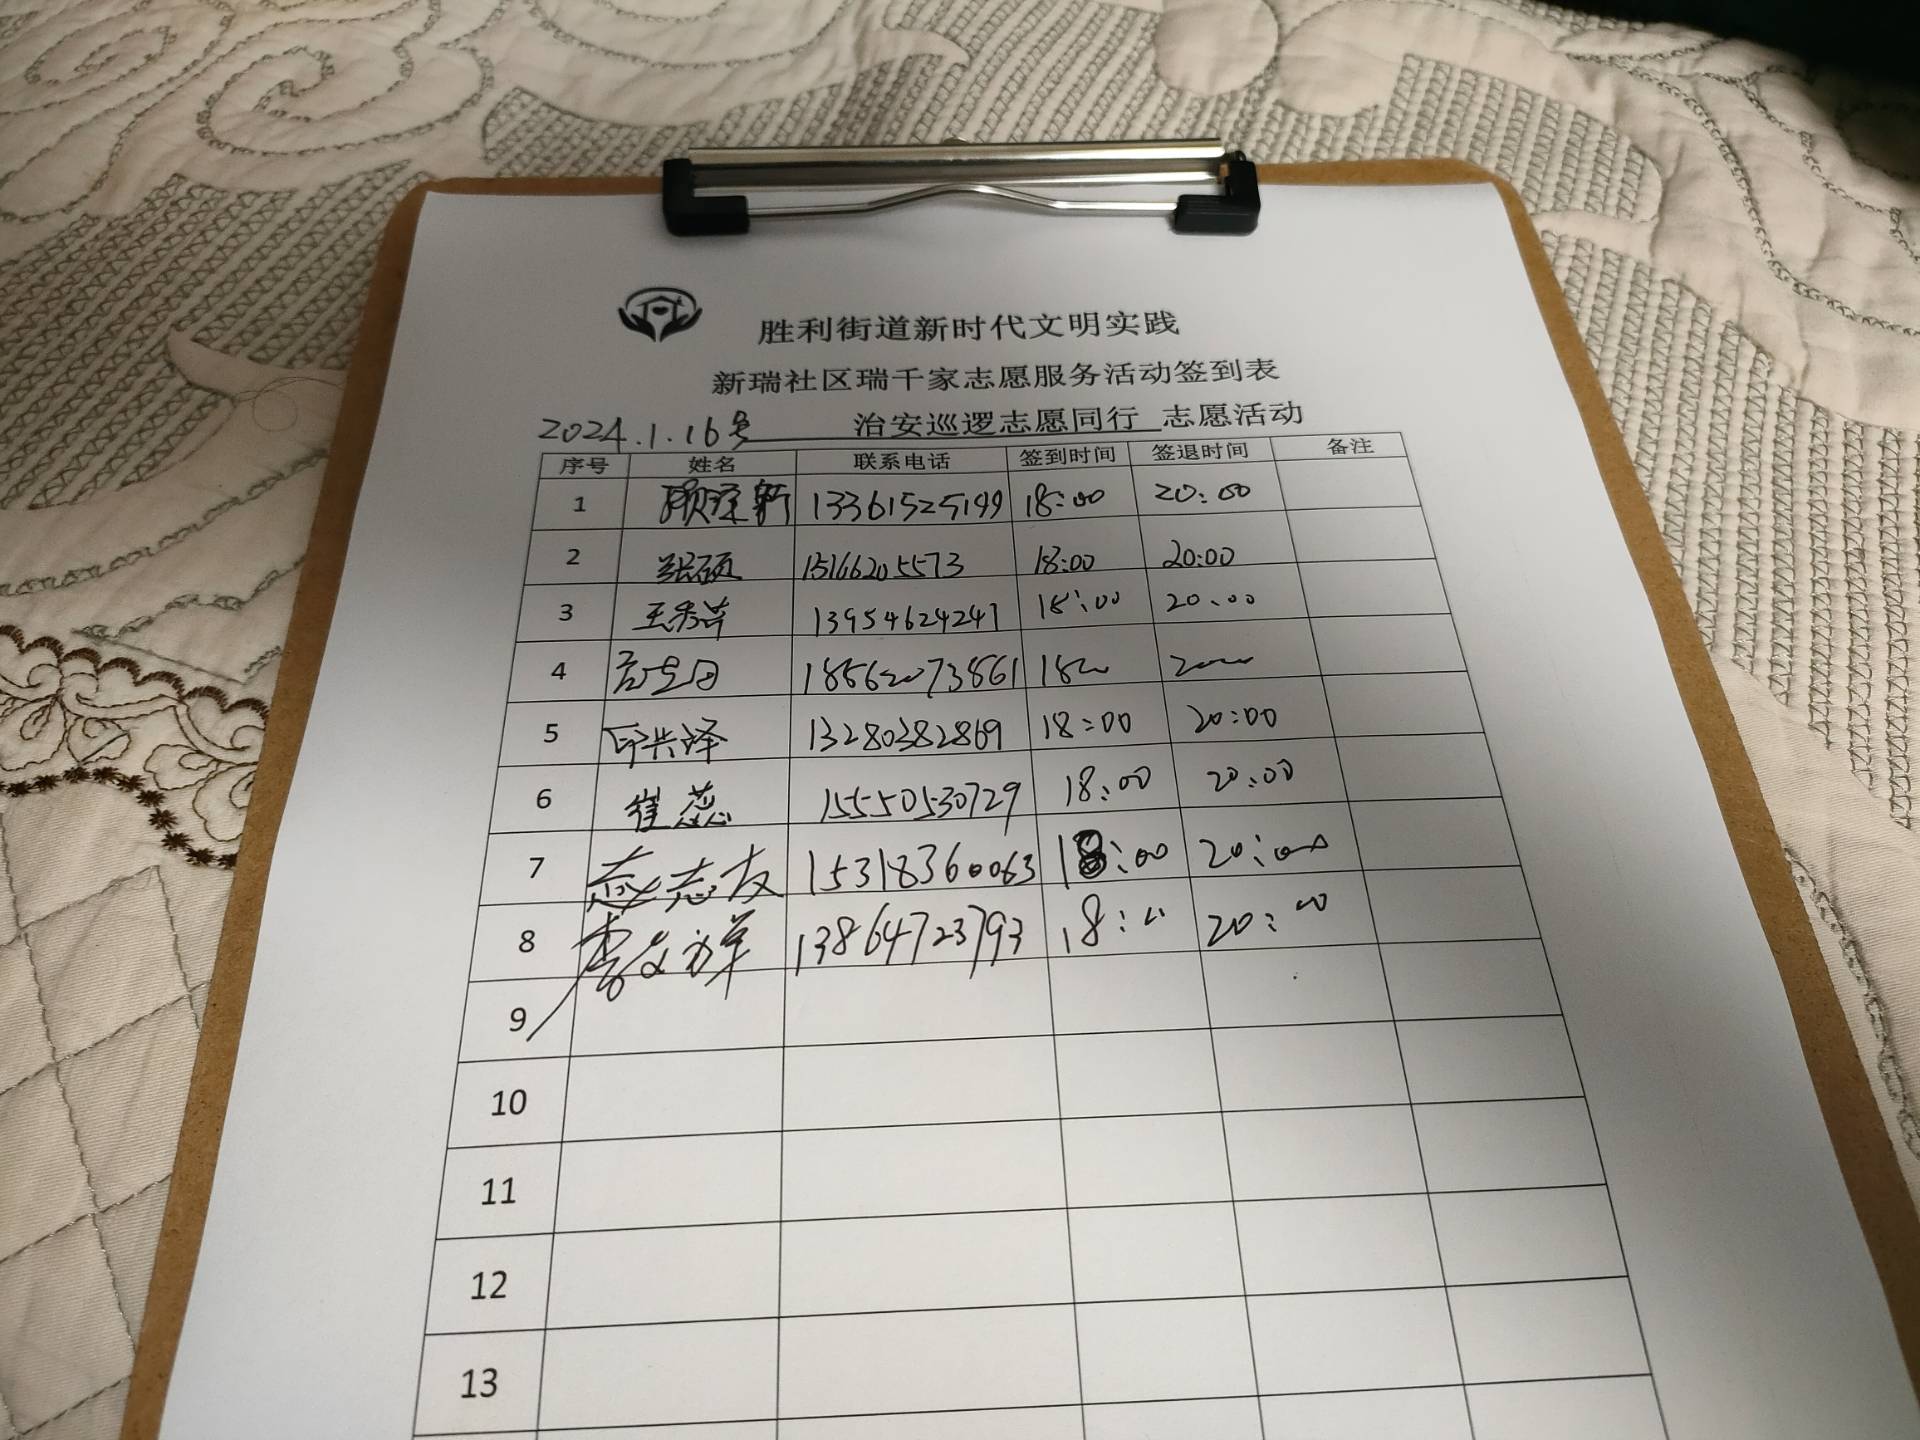 胜利街道新时代文明实践
新瑞社区瑞千家志愿服务活动签到表
2024.1.16号 治安巡逻志愿同行 志愿活动
序号 姓名 联系电话 签到时间 签退时间 备注
1 13361525199 18:00 20:00
2 张硕 15166205573 18:00 20:00
3 王秀芹 13954624241 18:00 20:00
4 18562073861
5 印兴泽 13280382869 18:00 20:00
6 崔蕊 15550530729 18:00 20:00
7 志友 15318360063 18:00 20:00
8 李文祥 13864723793 18:00 20:00
9
10
11
12
13